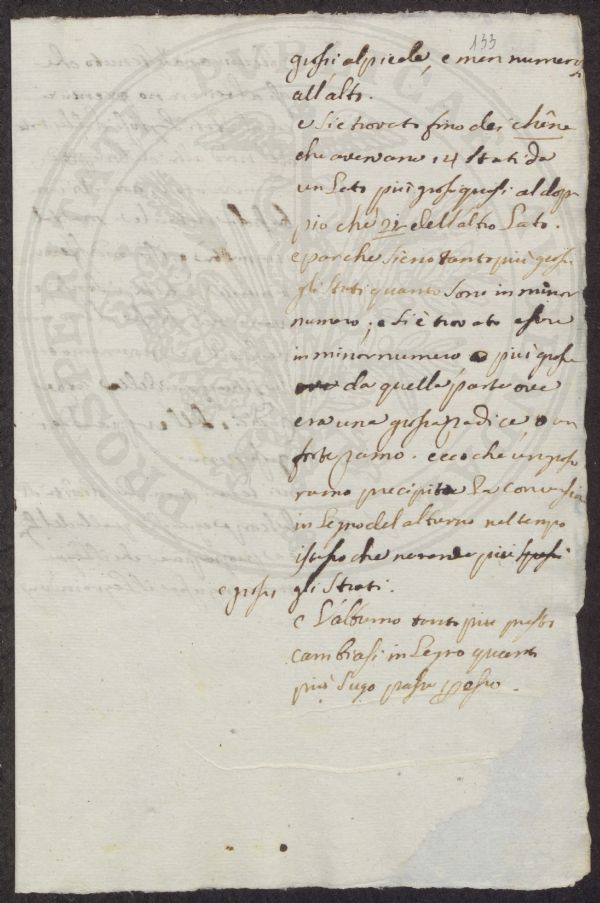 133
grossi al piede, e men numerosi
all'alto.
e si è trovato fino dei chêne
che avevano 14 Strati da
un Lato più grossi quasi al dop
pio che 21 dell'altro Lato.
e par che sieno tanto più grossi
gli Strati quanto sono in minor
numero; e si è trovato essere
in minor numero e più grossi
da quella parte ove
era una grossa radice o un
forte ramo. ecco che un grosso
ramo precipita La conversion
in Legno del alburno nel tempo
istesso che ne rende più spessi
e grossi gli Strati.
e L'alburno tanto più presto
cambiasi in Legno quanto
più Sugo passa per esso.
PROSPERITATI PUBLICAE